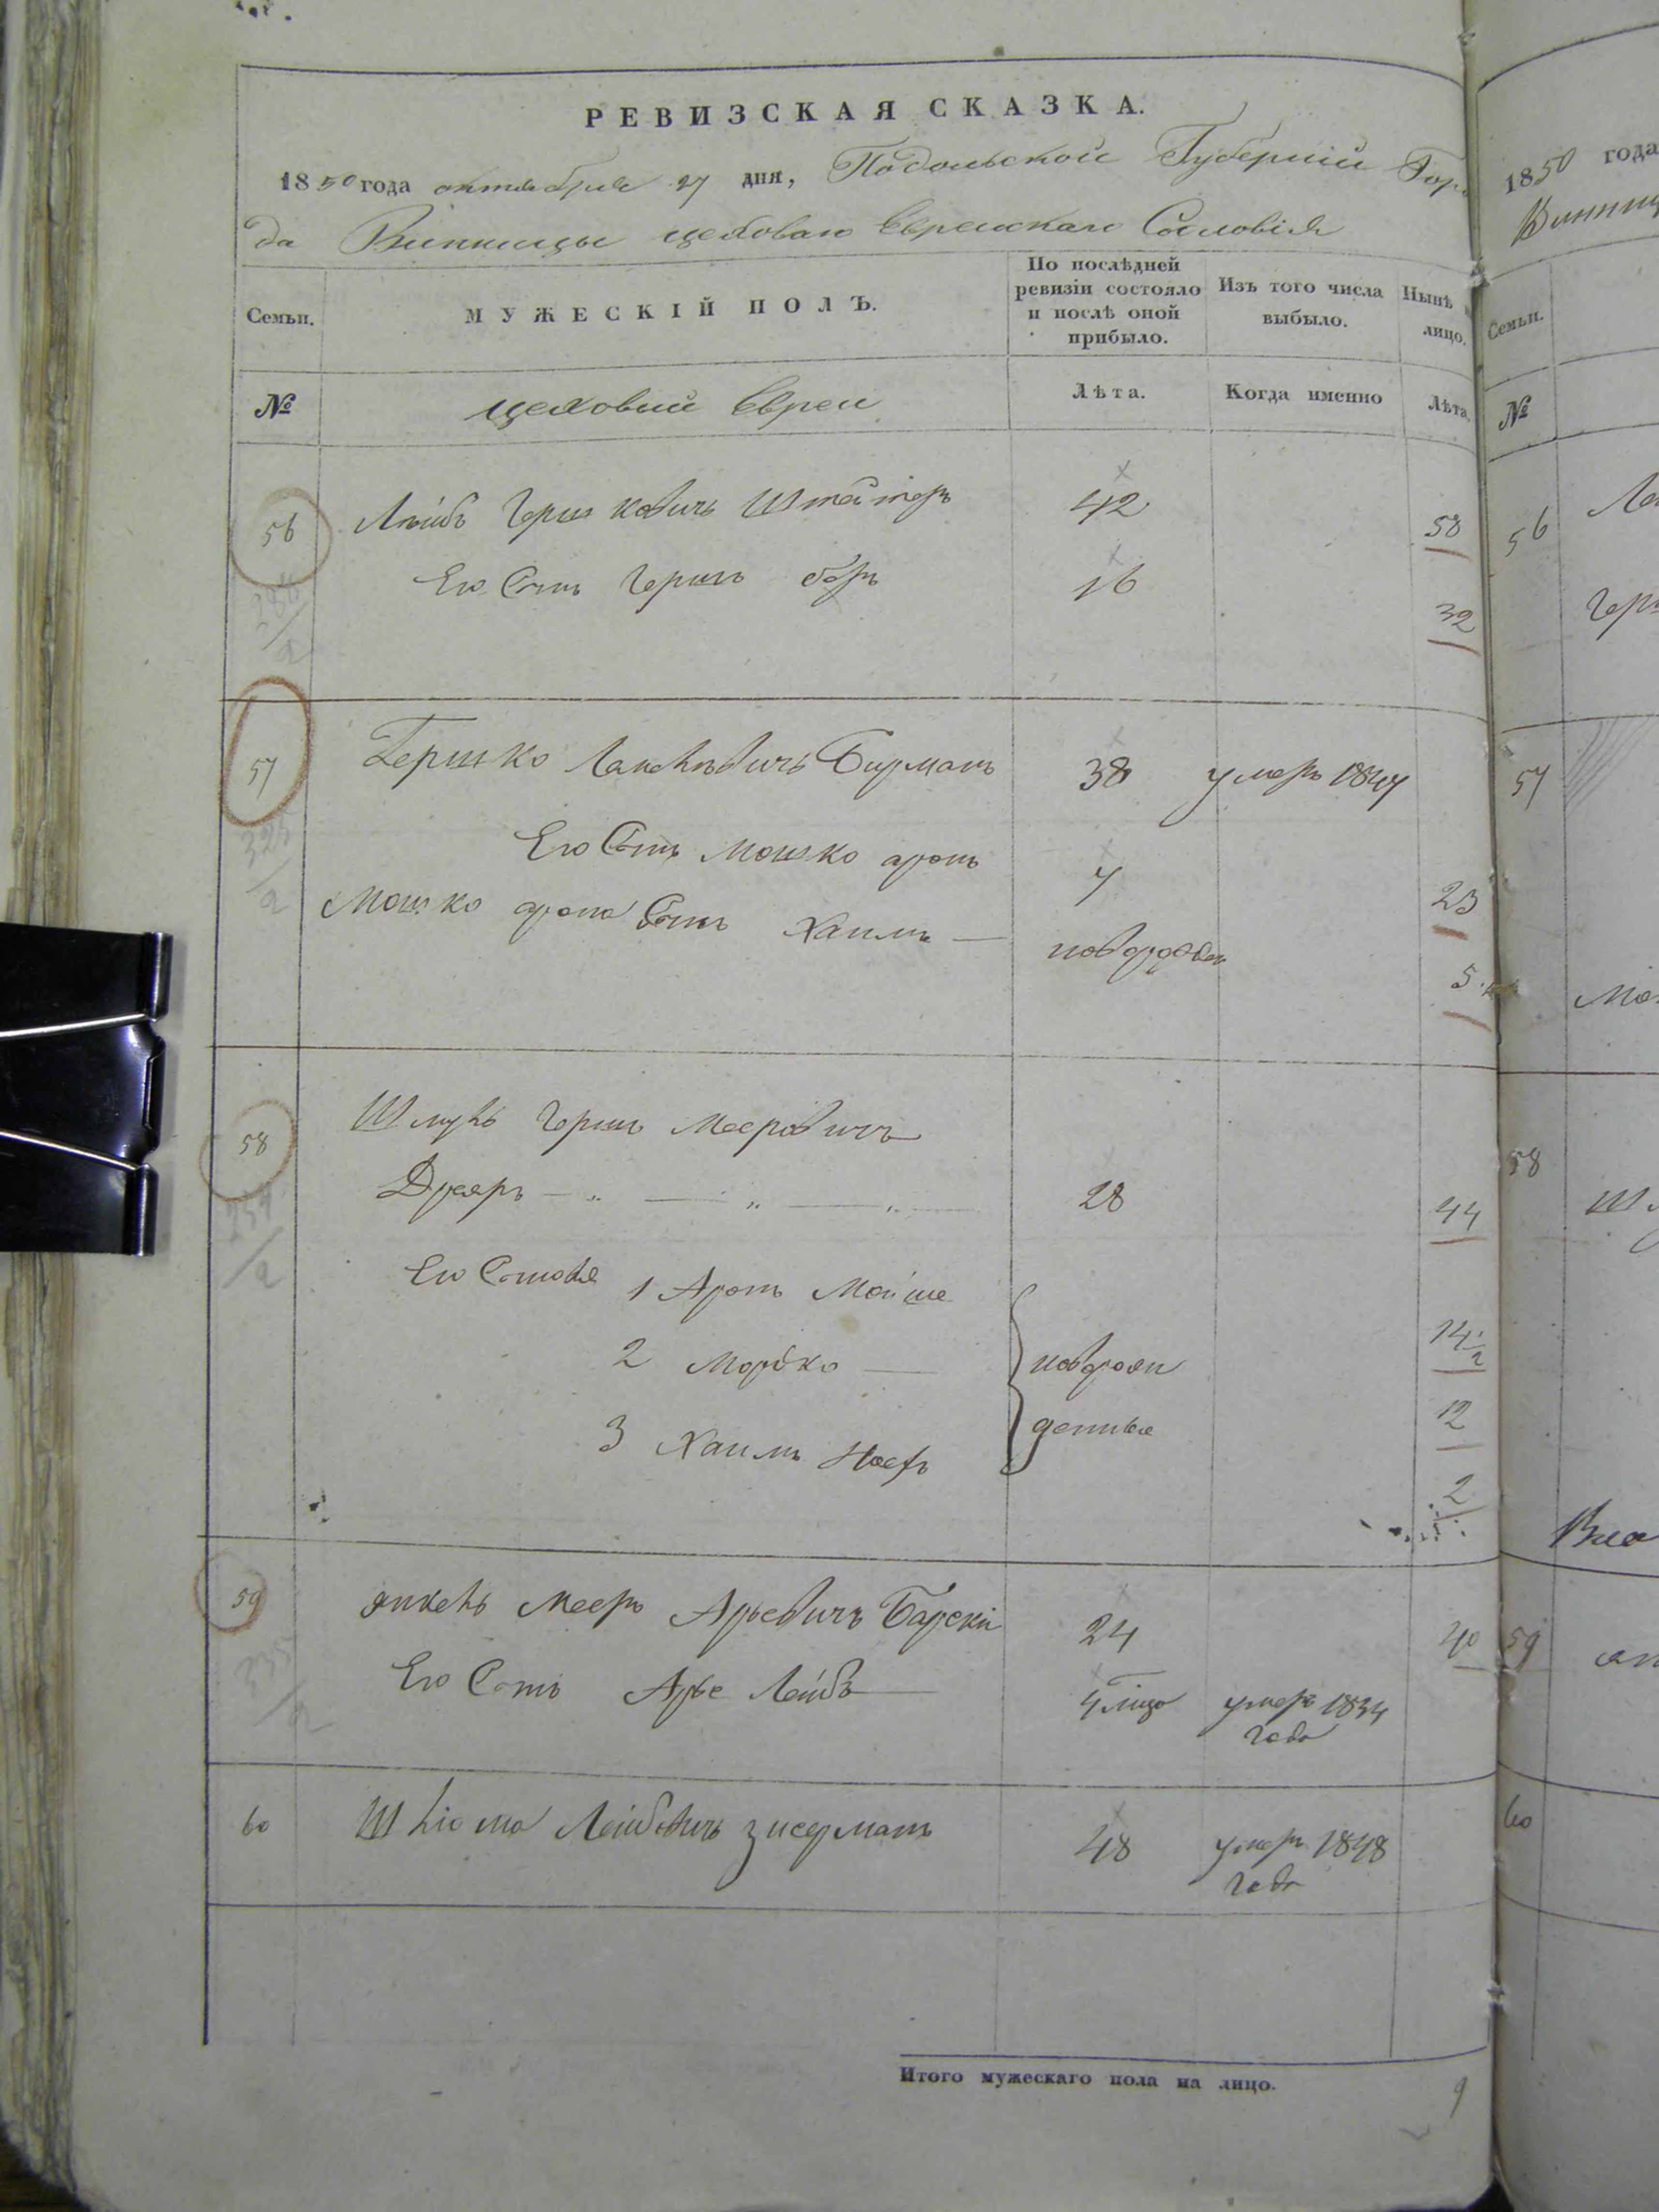 РЕВИЗСКАЯ СКАЗКА.
1850 года октября 27 дня, Подольской Губерніи Горо
да Винницы цеховаго Еврейскаго Сословія
Семьи.
МУЖЕСКІЙ ПОЛЪ.
По послѣдней ревизіи состояло и послѣ оной прибыло.
Изъ того числа выбыло.
Нынѣ на лицо.
№
цеховыи Евреи
Лѣта.
Когда именно
Лѣта
56 Лейбъ Гершковичъ 42 58
Его Сынъ Гершъ 16 32
57 Гершко Бирманъ 38 умеръ 1847
Его Сынъ Мошко аронъ 7 23
Мошко арона Сынъ Хаимъ — новорожден 5
58 Шмуль Гершъ Мееровичъ
28 44
Его Сыновья 1 Аронъ Мойше 14 1/2
2 Мордко — новорож 12
3 Хаимъ денные 2
59 Янкель Мееръ Арьевичъ Барскій 24 40
Его Сынъ Арье Лейбъ — умеръ 1834
года
60 Шліома Лейбовичъ Зисерманъ 48 умеръ 1848
года
Итого мужескаго пола на лицо.
9
1850 года
Семьи.
№
56
57
58
59
60